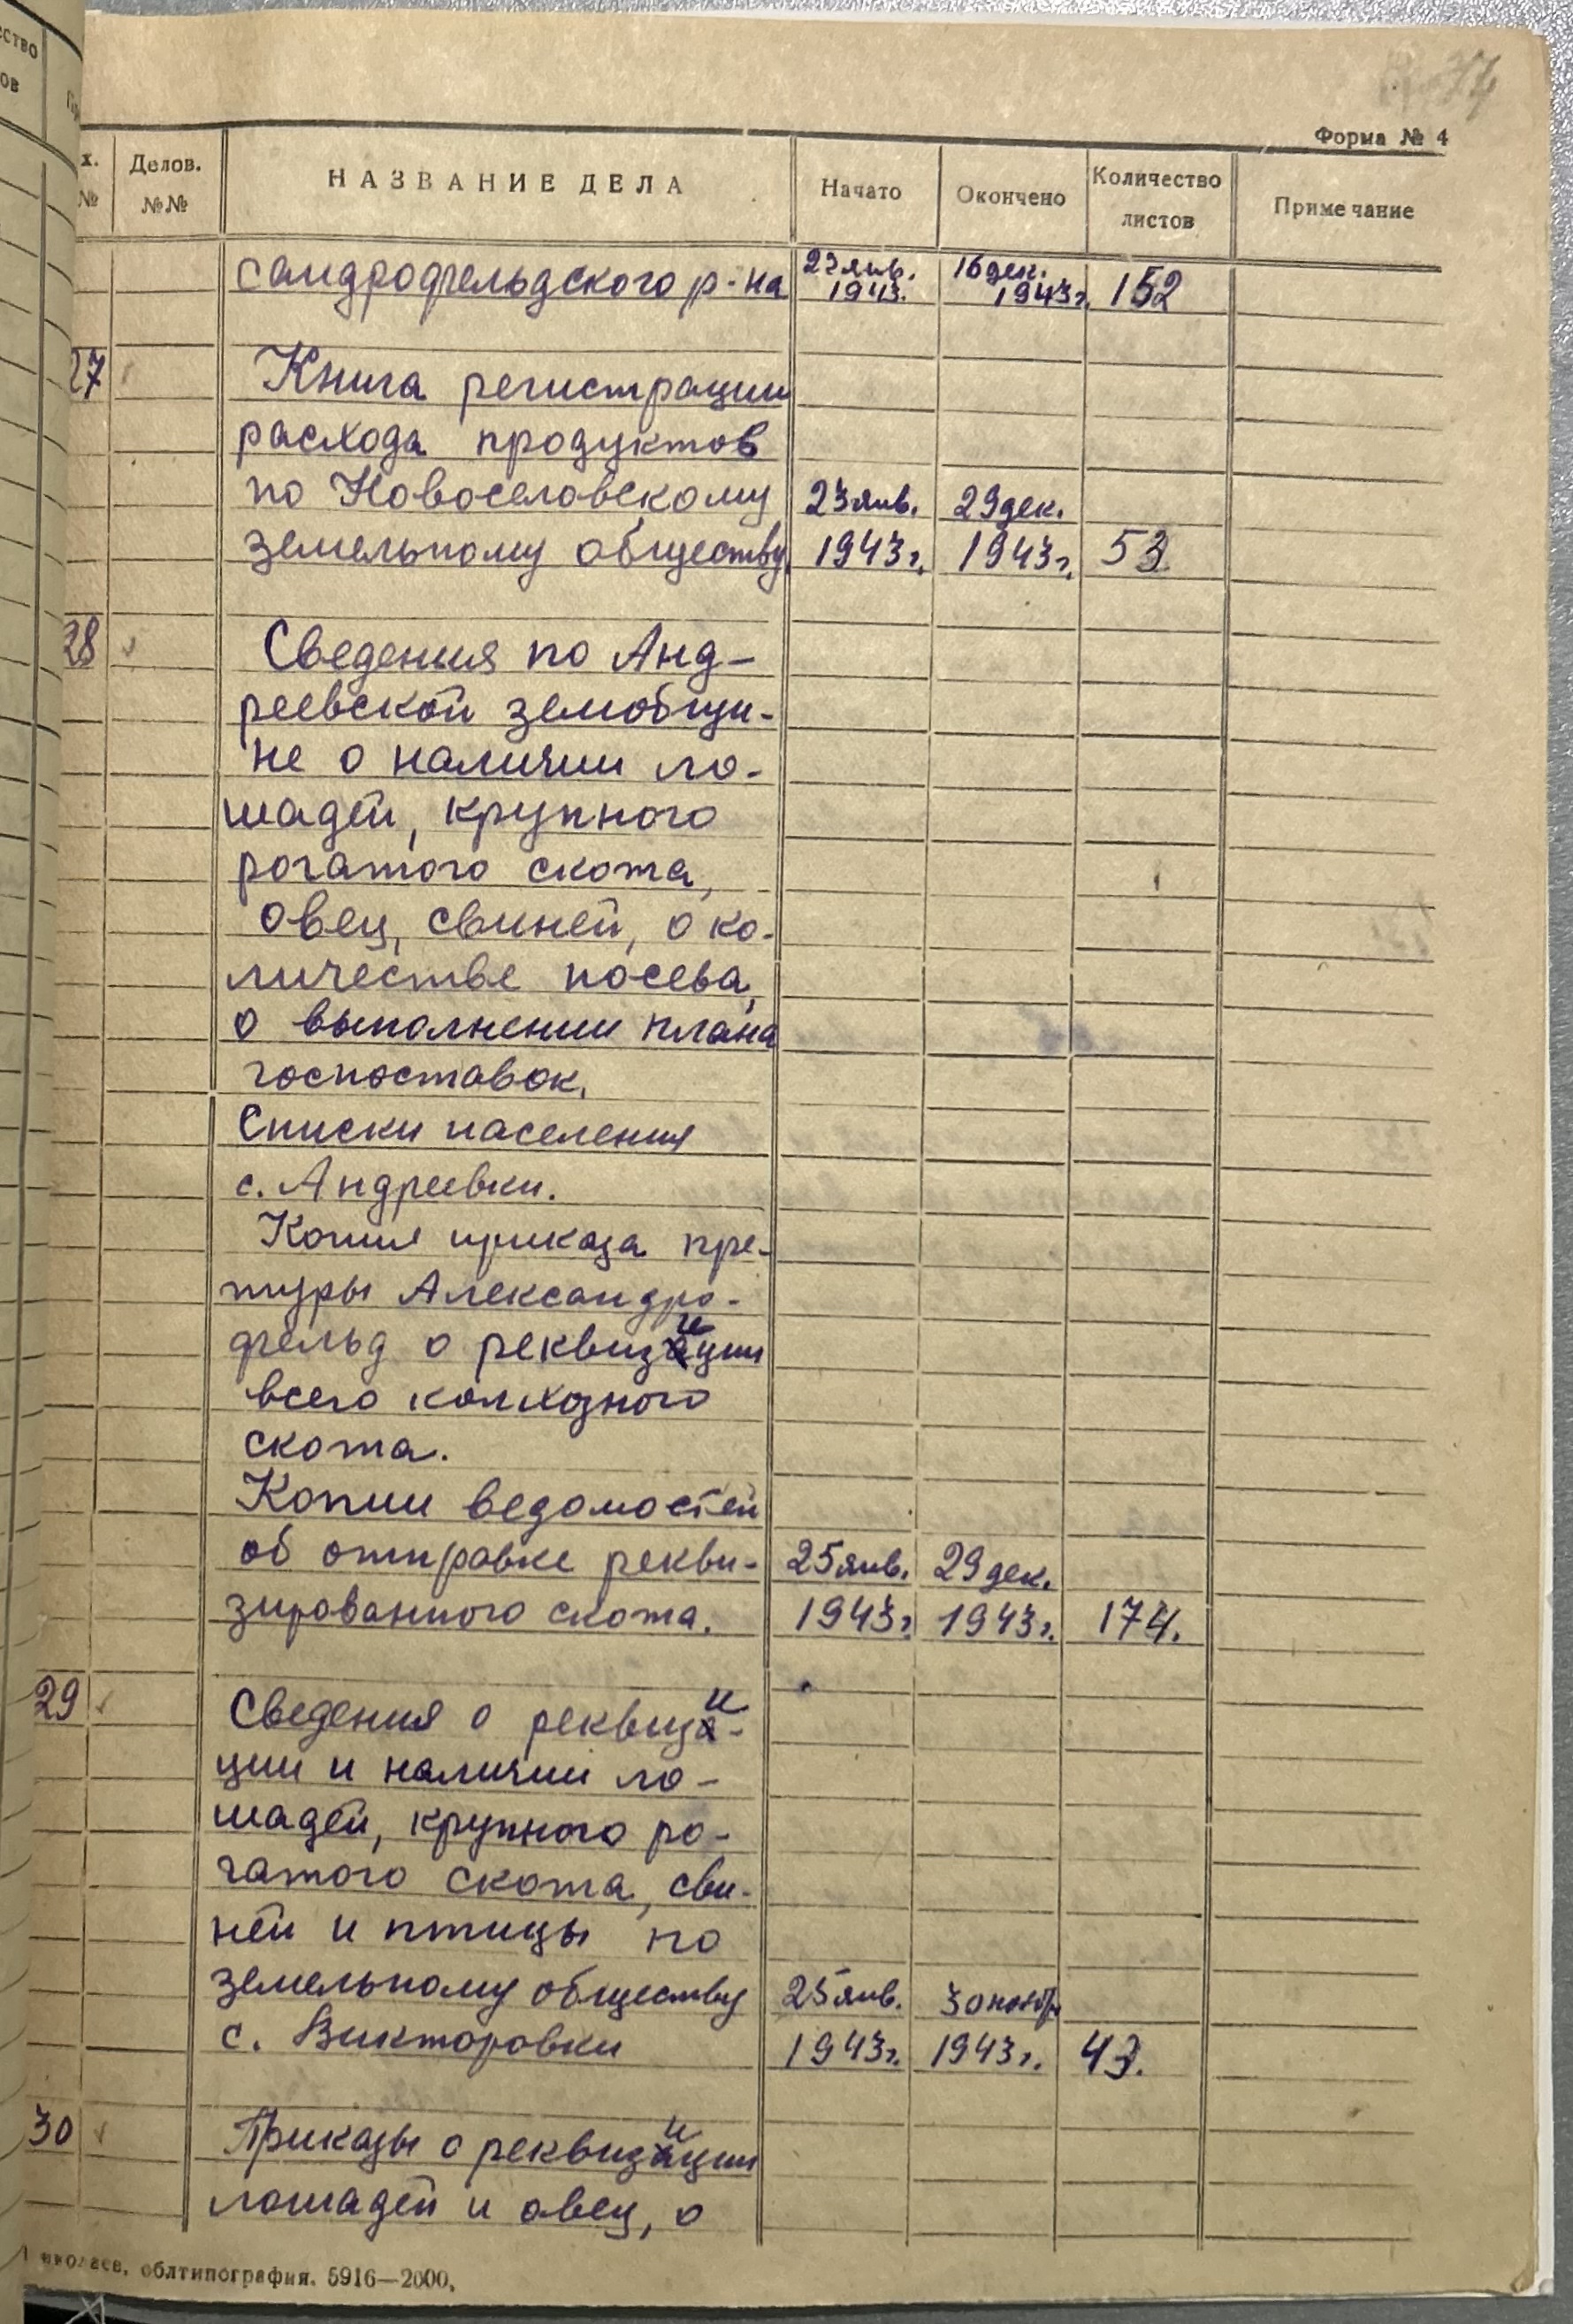 ство
ов
74
Форма № 4
х. №
Делов. №№
НАЗВАНИЕ ДЕЛА
Начато
Окончено
Количество листов
Примечание
сандрофельдского р-на 23 янв. 1943. 16 дек. 1943 г. 152
27 Книга регистрации
расхода продуктов
по Новоселовскому 23 янв. 29 дек.
земельному обществу. 1943 г. 1943 г. 53.
28 Сведения по Анд-
реевской земобщи-
не о наличии ло-
шадей, крупного
рогатого скота,
овец, свиней, о ко-
личестве посева,
о выполнении плана
госпоставок.
Списки населения
с. Андреевки.
Копия приказа пре-
туры Александро-
фельд о реквизиции
всего колхозного
скота.
Копии ведомостей
об отправке рекви- 25 янв. 29 дек.
зированного скота. 1943 г. 1943 г. 174.
29 Сведения о реквизи-
ции и наличии ло-
шадей, крупного ро-
гатого скота, сви-
ней и птицы по
земельному обществу 25 янв. 30 ноябр
с. Викторовки 1943 г. 1943 г. 43.
30 Приказы о реквизиции
лошадей и овец, о
иколаев, облтипография. 5916—2000.